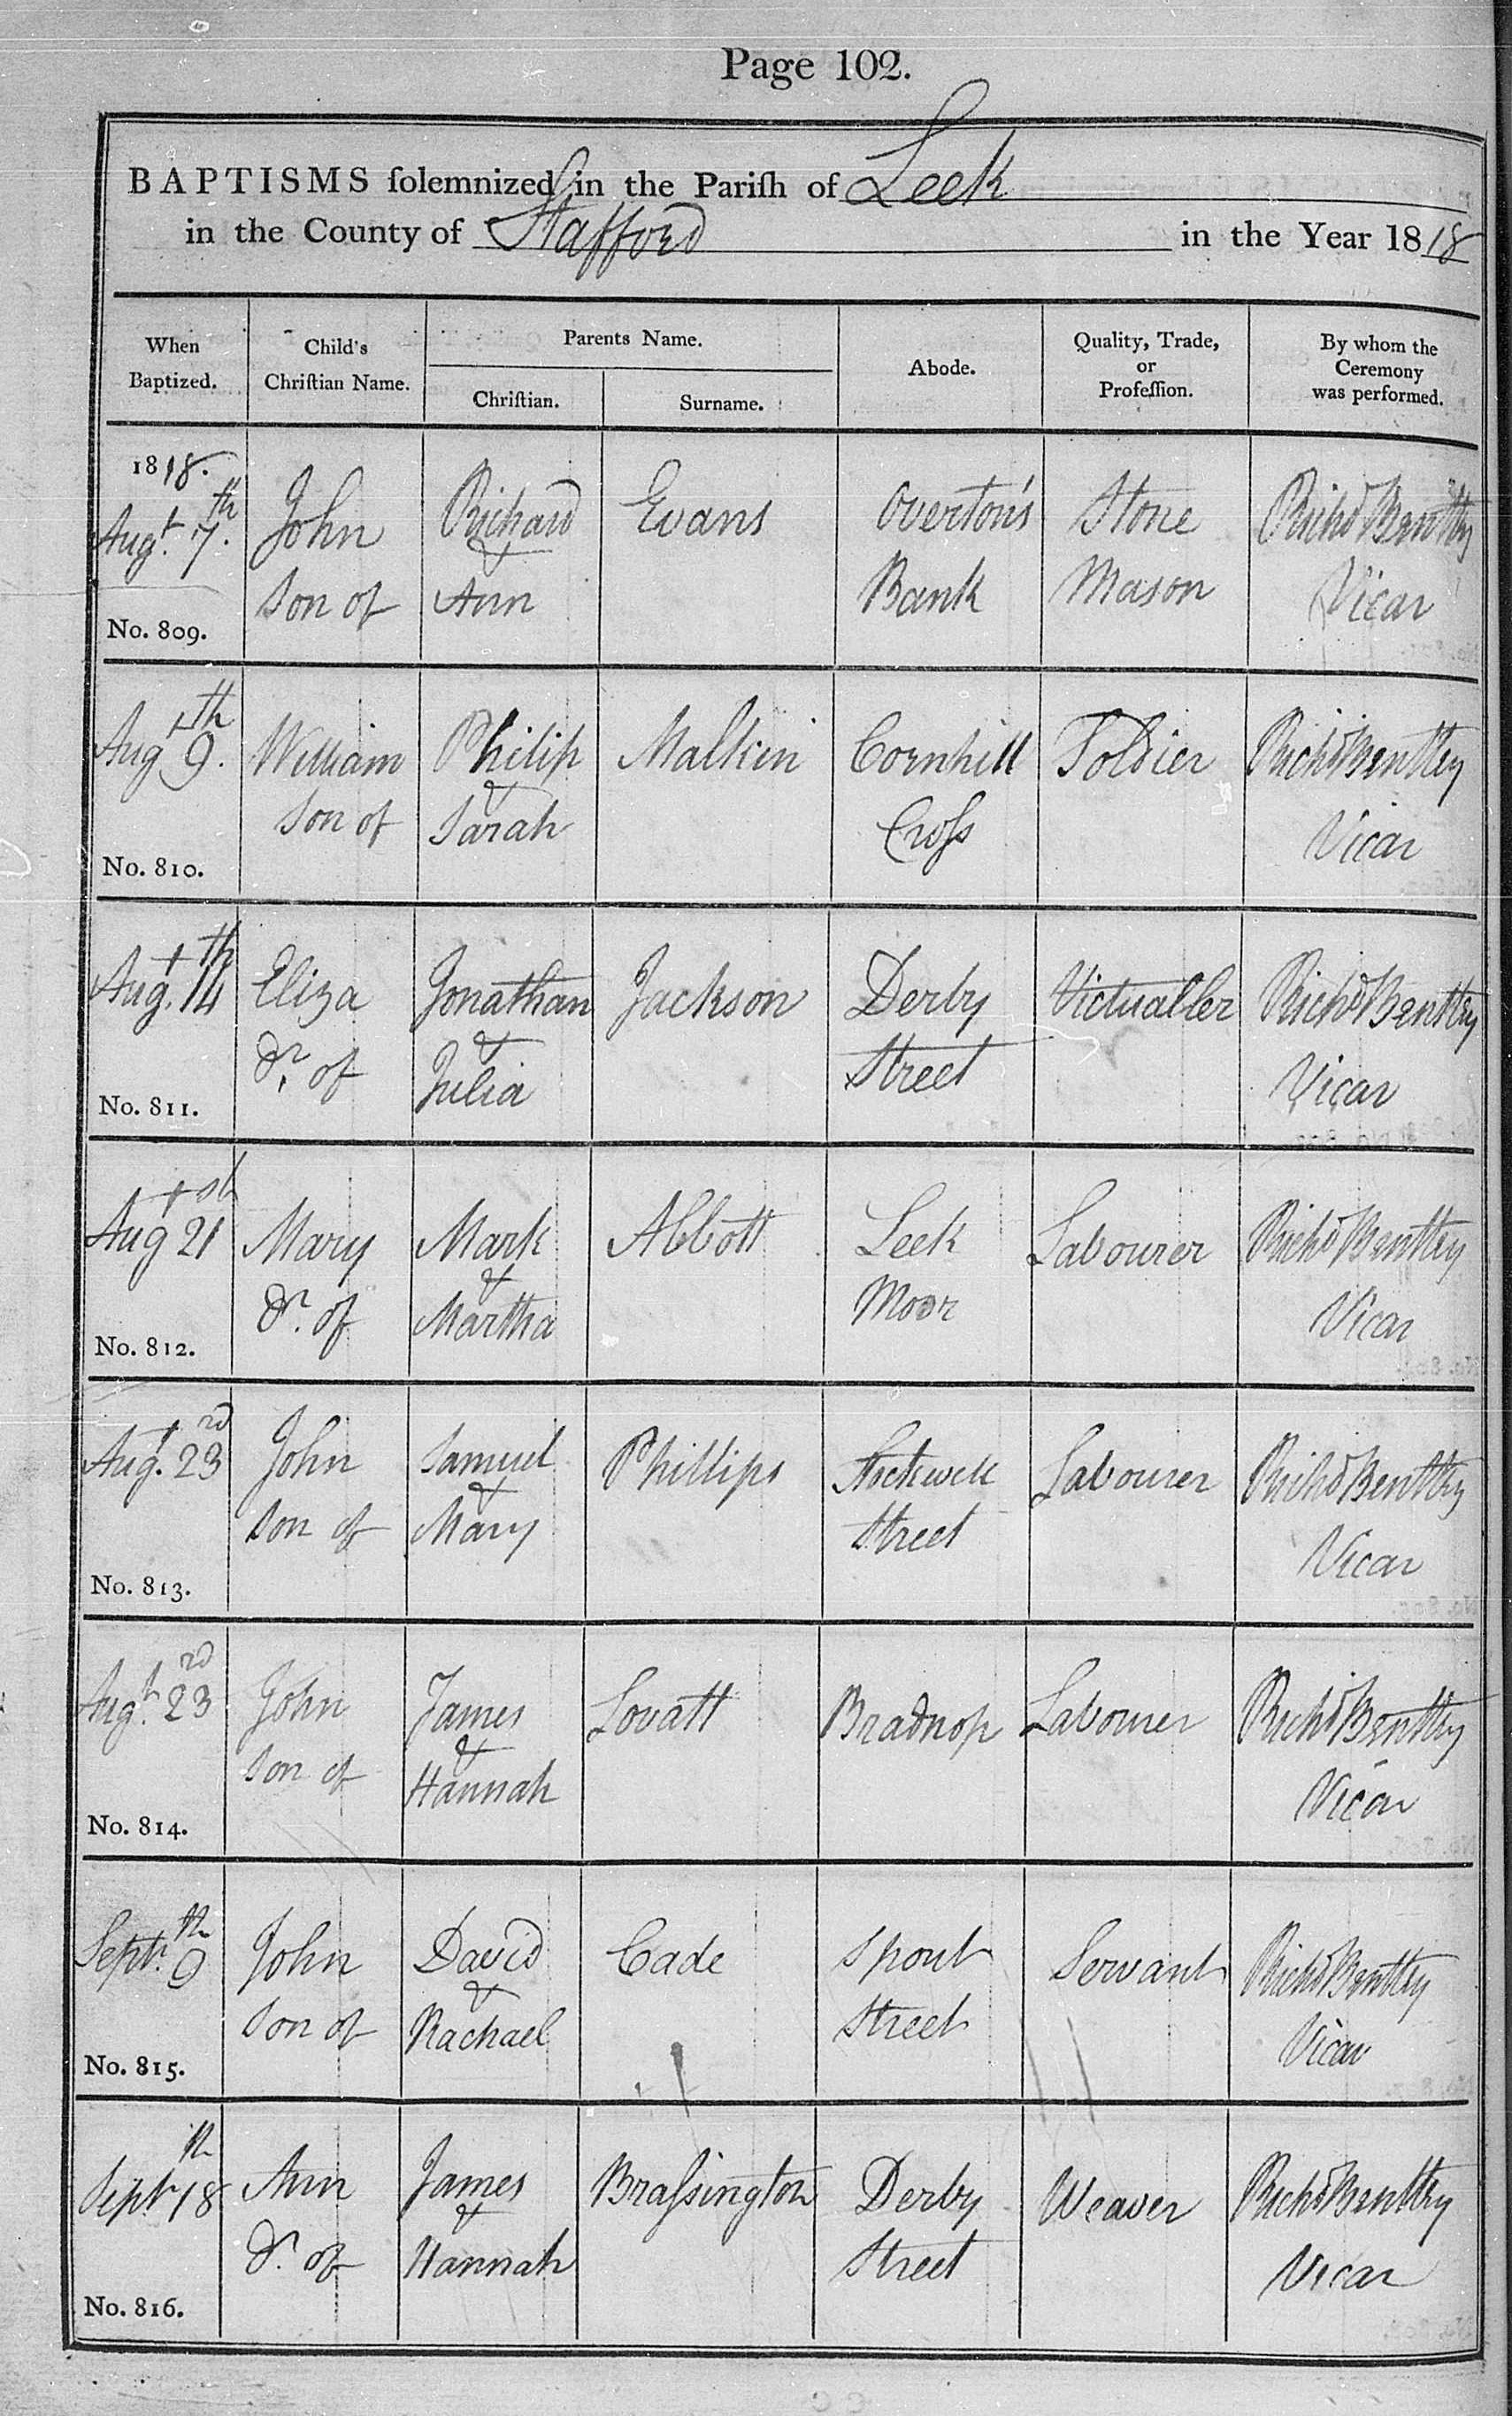 Page 102.
BAPTISMS ſolemnized in the Pariſh of Leek
in the County of Stafford in the Year 1818
When Baptized.
Child's Chriſtian Name.
Parents Name.
Chriſtian.
Surname.
Abode.
Quality, Trade, or Profeſſion.
By whom the Ceremony was performed.
1818.
Augt. 7th.
No. 809.
John
Son of
Richard
&
Ann
Evans
Overton's
Bank
Stone
Mason
Richd Bentley
Vicar
Augt 9th.
No. 810.
William
Son of
Philip
&
Sarah
Malkin
Cornhill
Croſs
Soldier
Richd Bentley
Vicar
Augt. 14th
No. 811.
Eliza
Dr. of
Jonathan
&
Julia
Jackson
Derby
Street
Victualler
Richd Bentley
Vicar
Augt 21st
No. 812.
Mary
Dr. of
Mark
&
Martha
Abbott
Leek
Moor
Labourer
Richd Bentley
Vicar
Augt. 23rd
No. 813.
John
Son of
Samuel
&
Mary
Phillips
Stockwell
Street
Labourer
Richd Bentley
Vicar
Augt. 23rd
No. 814.
John
Son of
James
&
Hannah
Lovatt
Bradnop
Labourer
Richd Bentley
Vicar
Septr. 9th
No. 815.
John
Son of
David
&
Rachael
Cade
Spout
Street
Servant
Richd Bentley
Vicar
Septr 18th
No. 816.
Ann
Dr. of
James
&
Hannah
Braſsington
Derby
Street
Weaver
Richd Bentley
Vicar